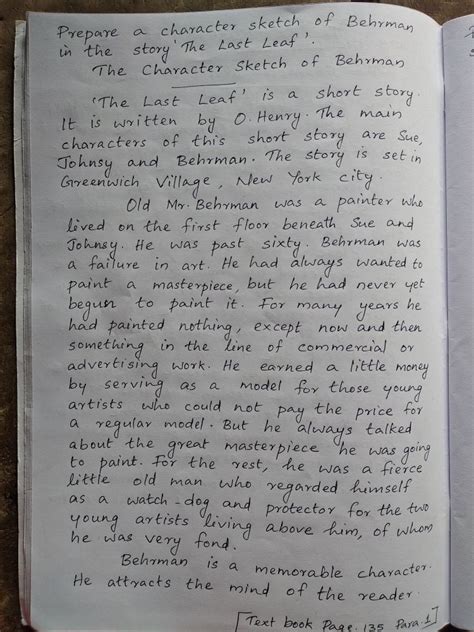 Prepare a character sketch of Behrman
in the story 'The Last Leaf'.
The Character Sketch of Behrman
'The Last Leaf' is a short story.
It is written by O. Henry. The main
characters of this short story are Sue,
Johnsy and Behrman. The story is set in
Greenwich Village, New York city.
Old Mr. Behrman was a painter who
lived on the first floor beneath Sue and
Johnsy. He was past sixty. Behrman was
a failure in art. He had always wanted to
paint a masterpiece, but he had never yet
begun to paint it. For many years he
had painted nothing, except now and then
something in the line of commercial or
advertising work. He earned a little money
by serving as a model for those young
artists who could not pay the price for
a regular model. But he always talked
about the great masterpiece he was going
to paint. For the rest, he was a fierce
little old man who regarded himself
as a watch-dog and protector for the two
young artists living above him, of whom
he was very fond.
Behrman is a memorable character.
He attracts the mind of the reader.
[Text book Page. 135 Para.1]